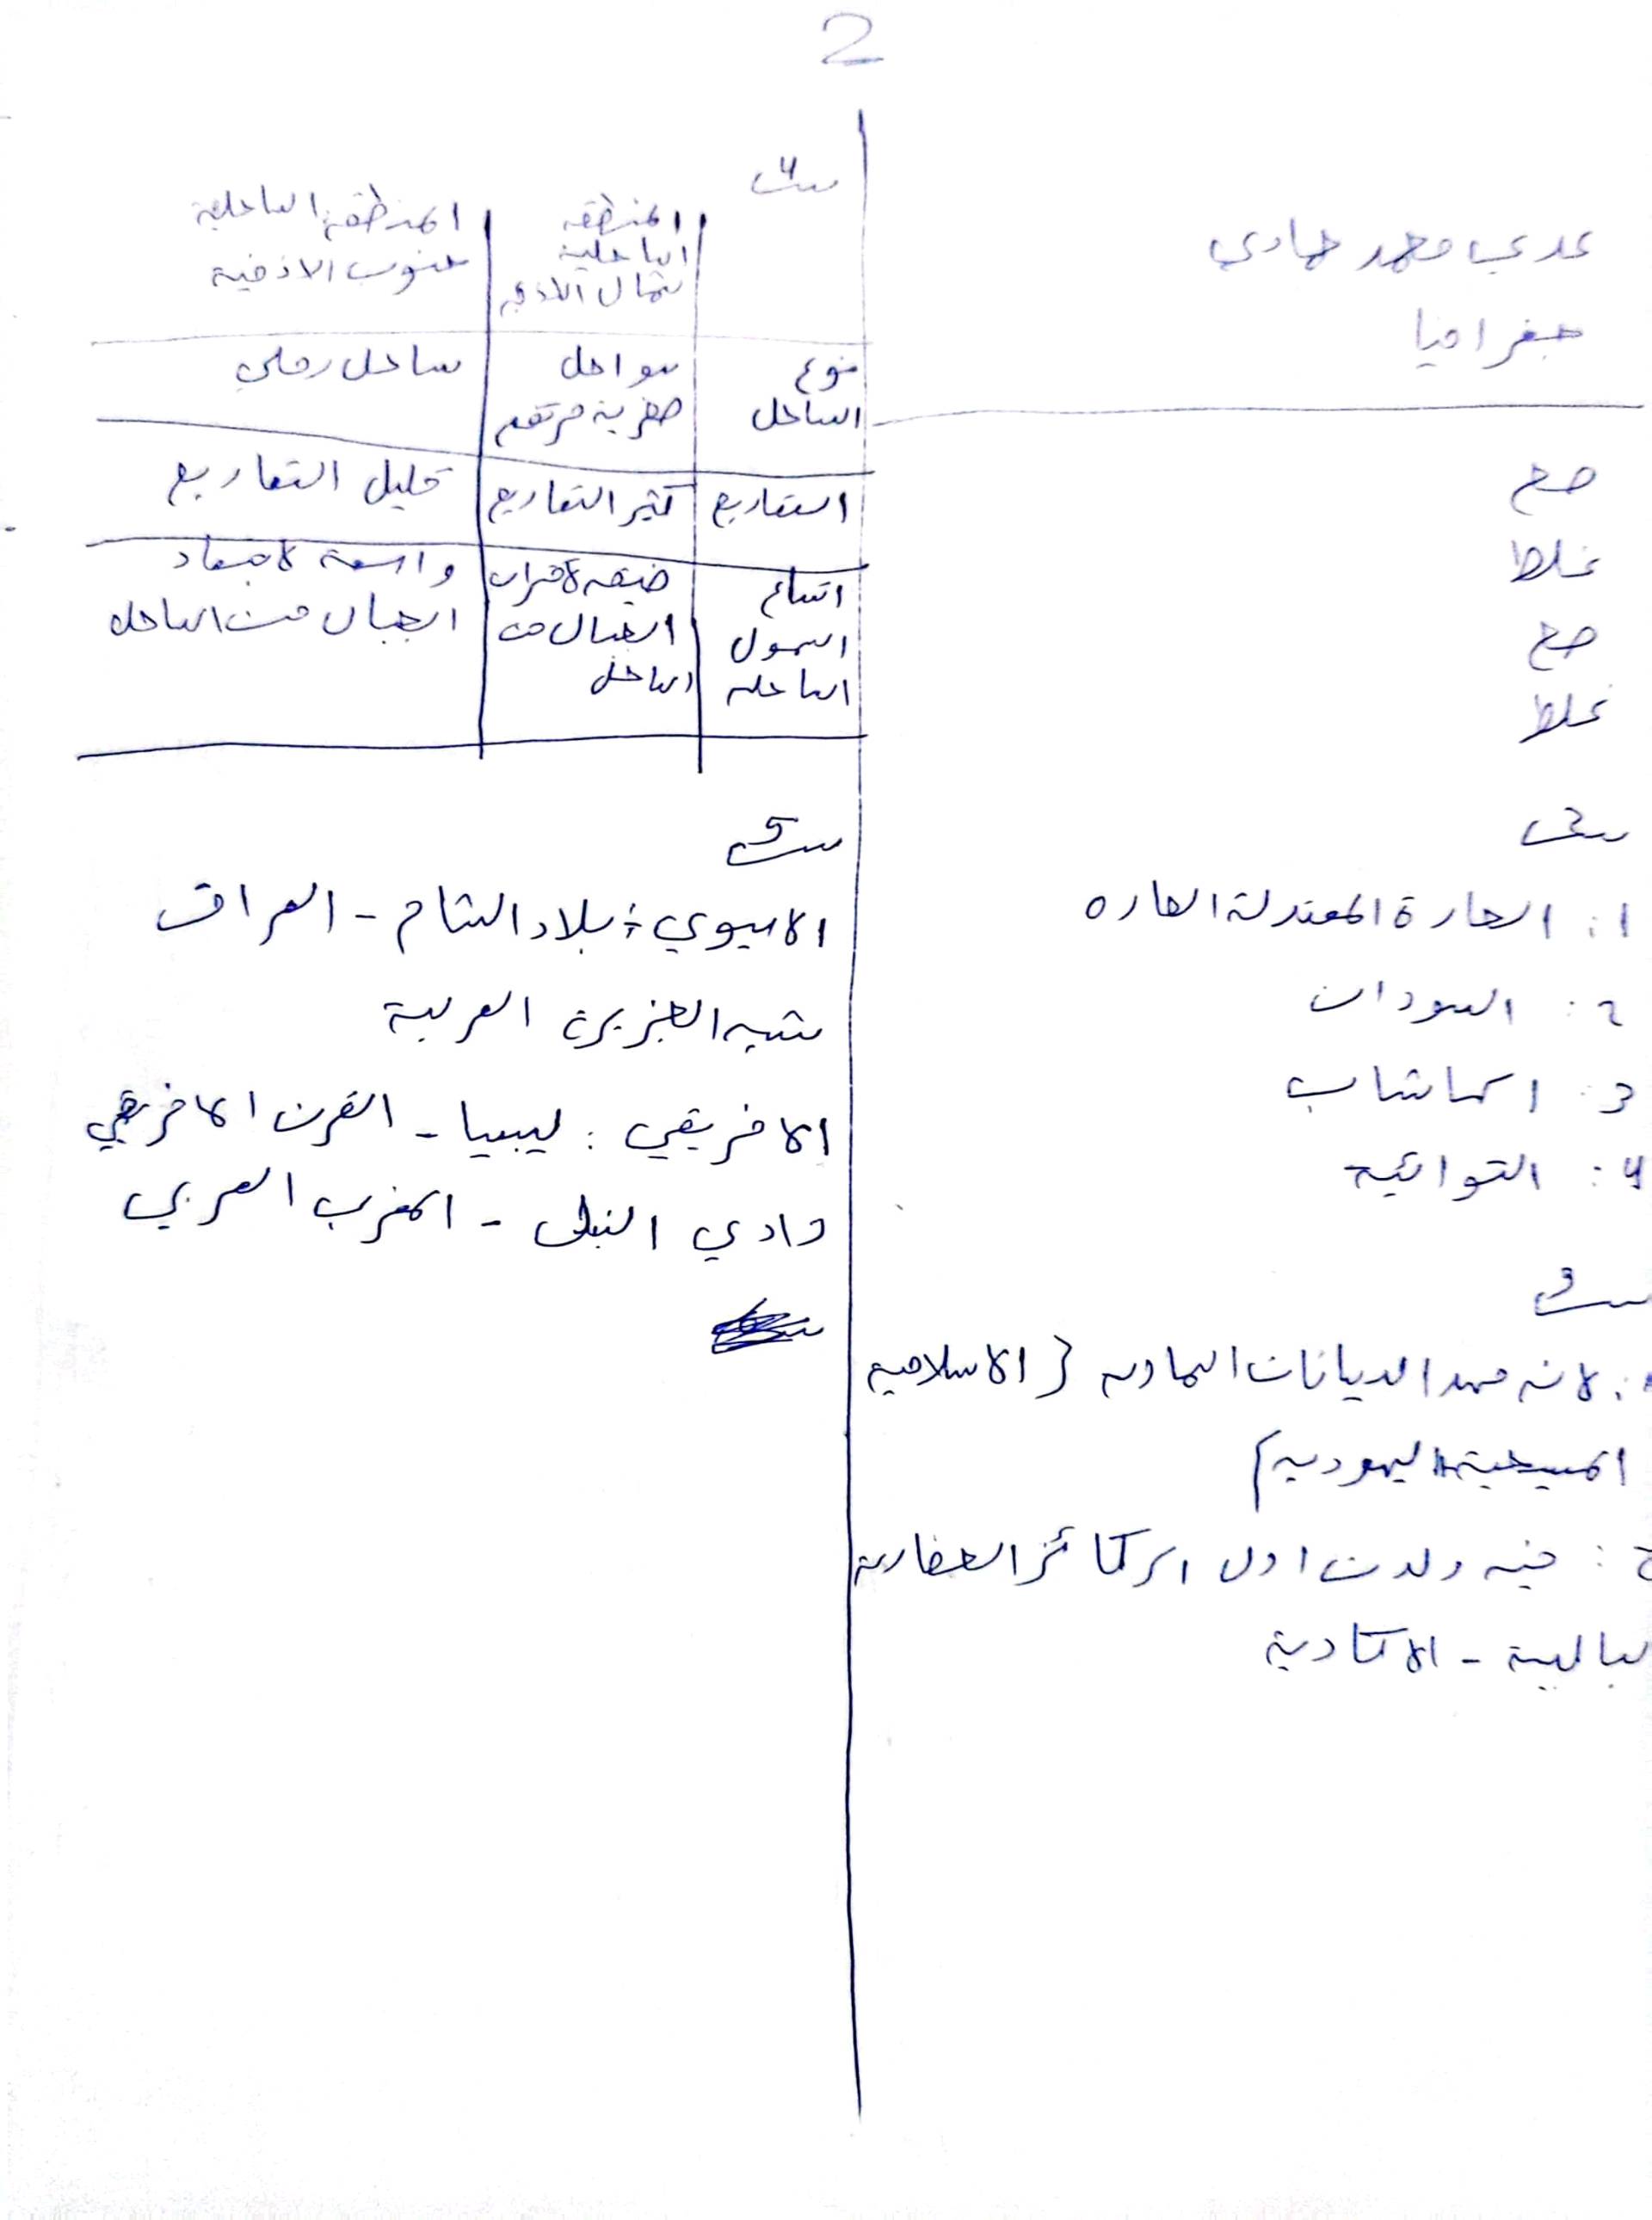 2
عدي محمد حمادي
جغرافيا
صح
غلط
صح
غلط
س2
1: الحارة المعتدلة الحاره
2: السودان
3: السماشاب
4: التوائية
س3
لانه مهد الديانات السماويه { الاسلاميه
المسيحية اليهوديه }
2: فيه ولدت اول الركائز الحضاريه
لبابلية - الاكادية
س4
المنطقة الساحلية شمال الافريقي | المنطقة الساحلية جنوب الافريقية
نوع الساحل | سواحل صخرية مرتفعه | ساحل رملي
التعاريج | كثير التعاريج | قليل التعاريج
اتساع السهول الساحليه | ضيقه لاقتراب الجبال من الساحل | واسعة لابتعاد الجبال من الساحل
س5
الاسيوي : بلاد الشام - العراق
شبه الجزيرة العربية
الافريقي : ليبيا - القرن الافريقي
وادي النيل - المغرب العربي